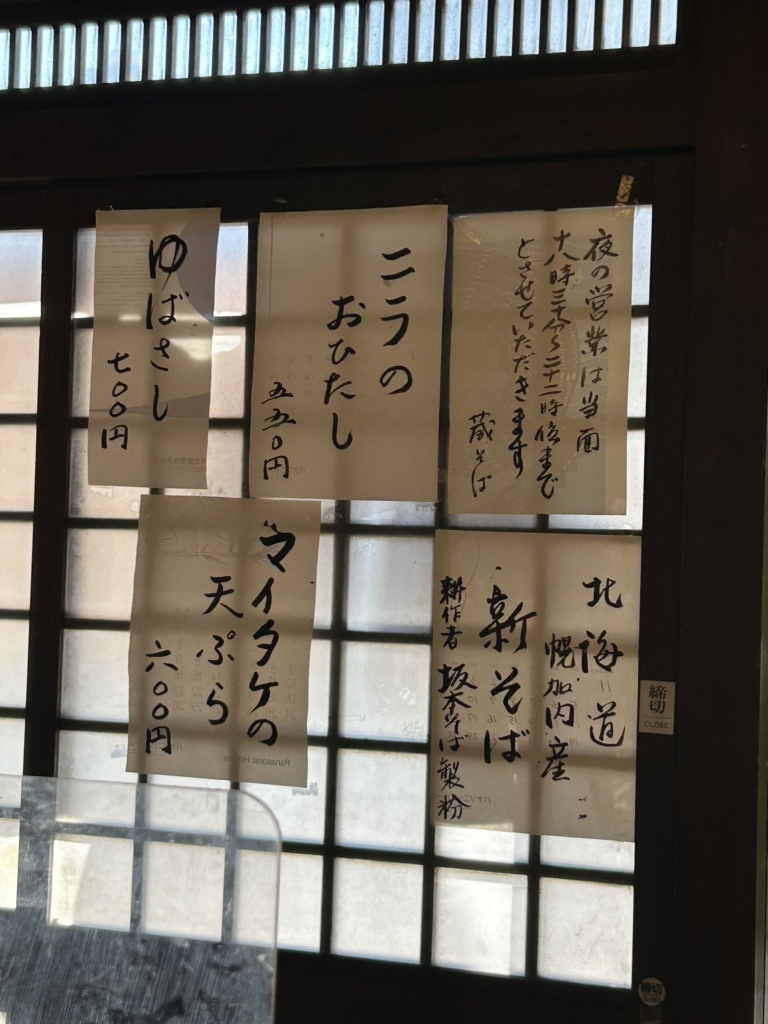 夜の営業は当面
十八時三十分から二十二時
とさせていただきます
蔵そば
ニラの
おひたし
五五〇円
ゆばさし
七〇〇円
北海道
幌加内産
新そば
耕作者 坂本そば製粉
マイタケの
天ぷら
六〇〇円
締切
CLOSE
Panasonic Ho
締切